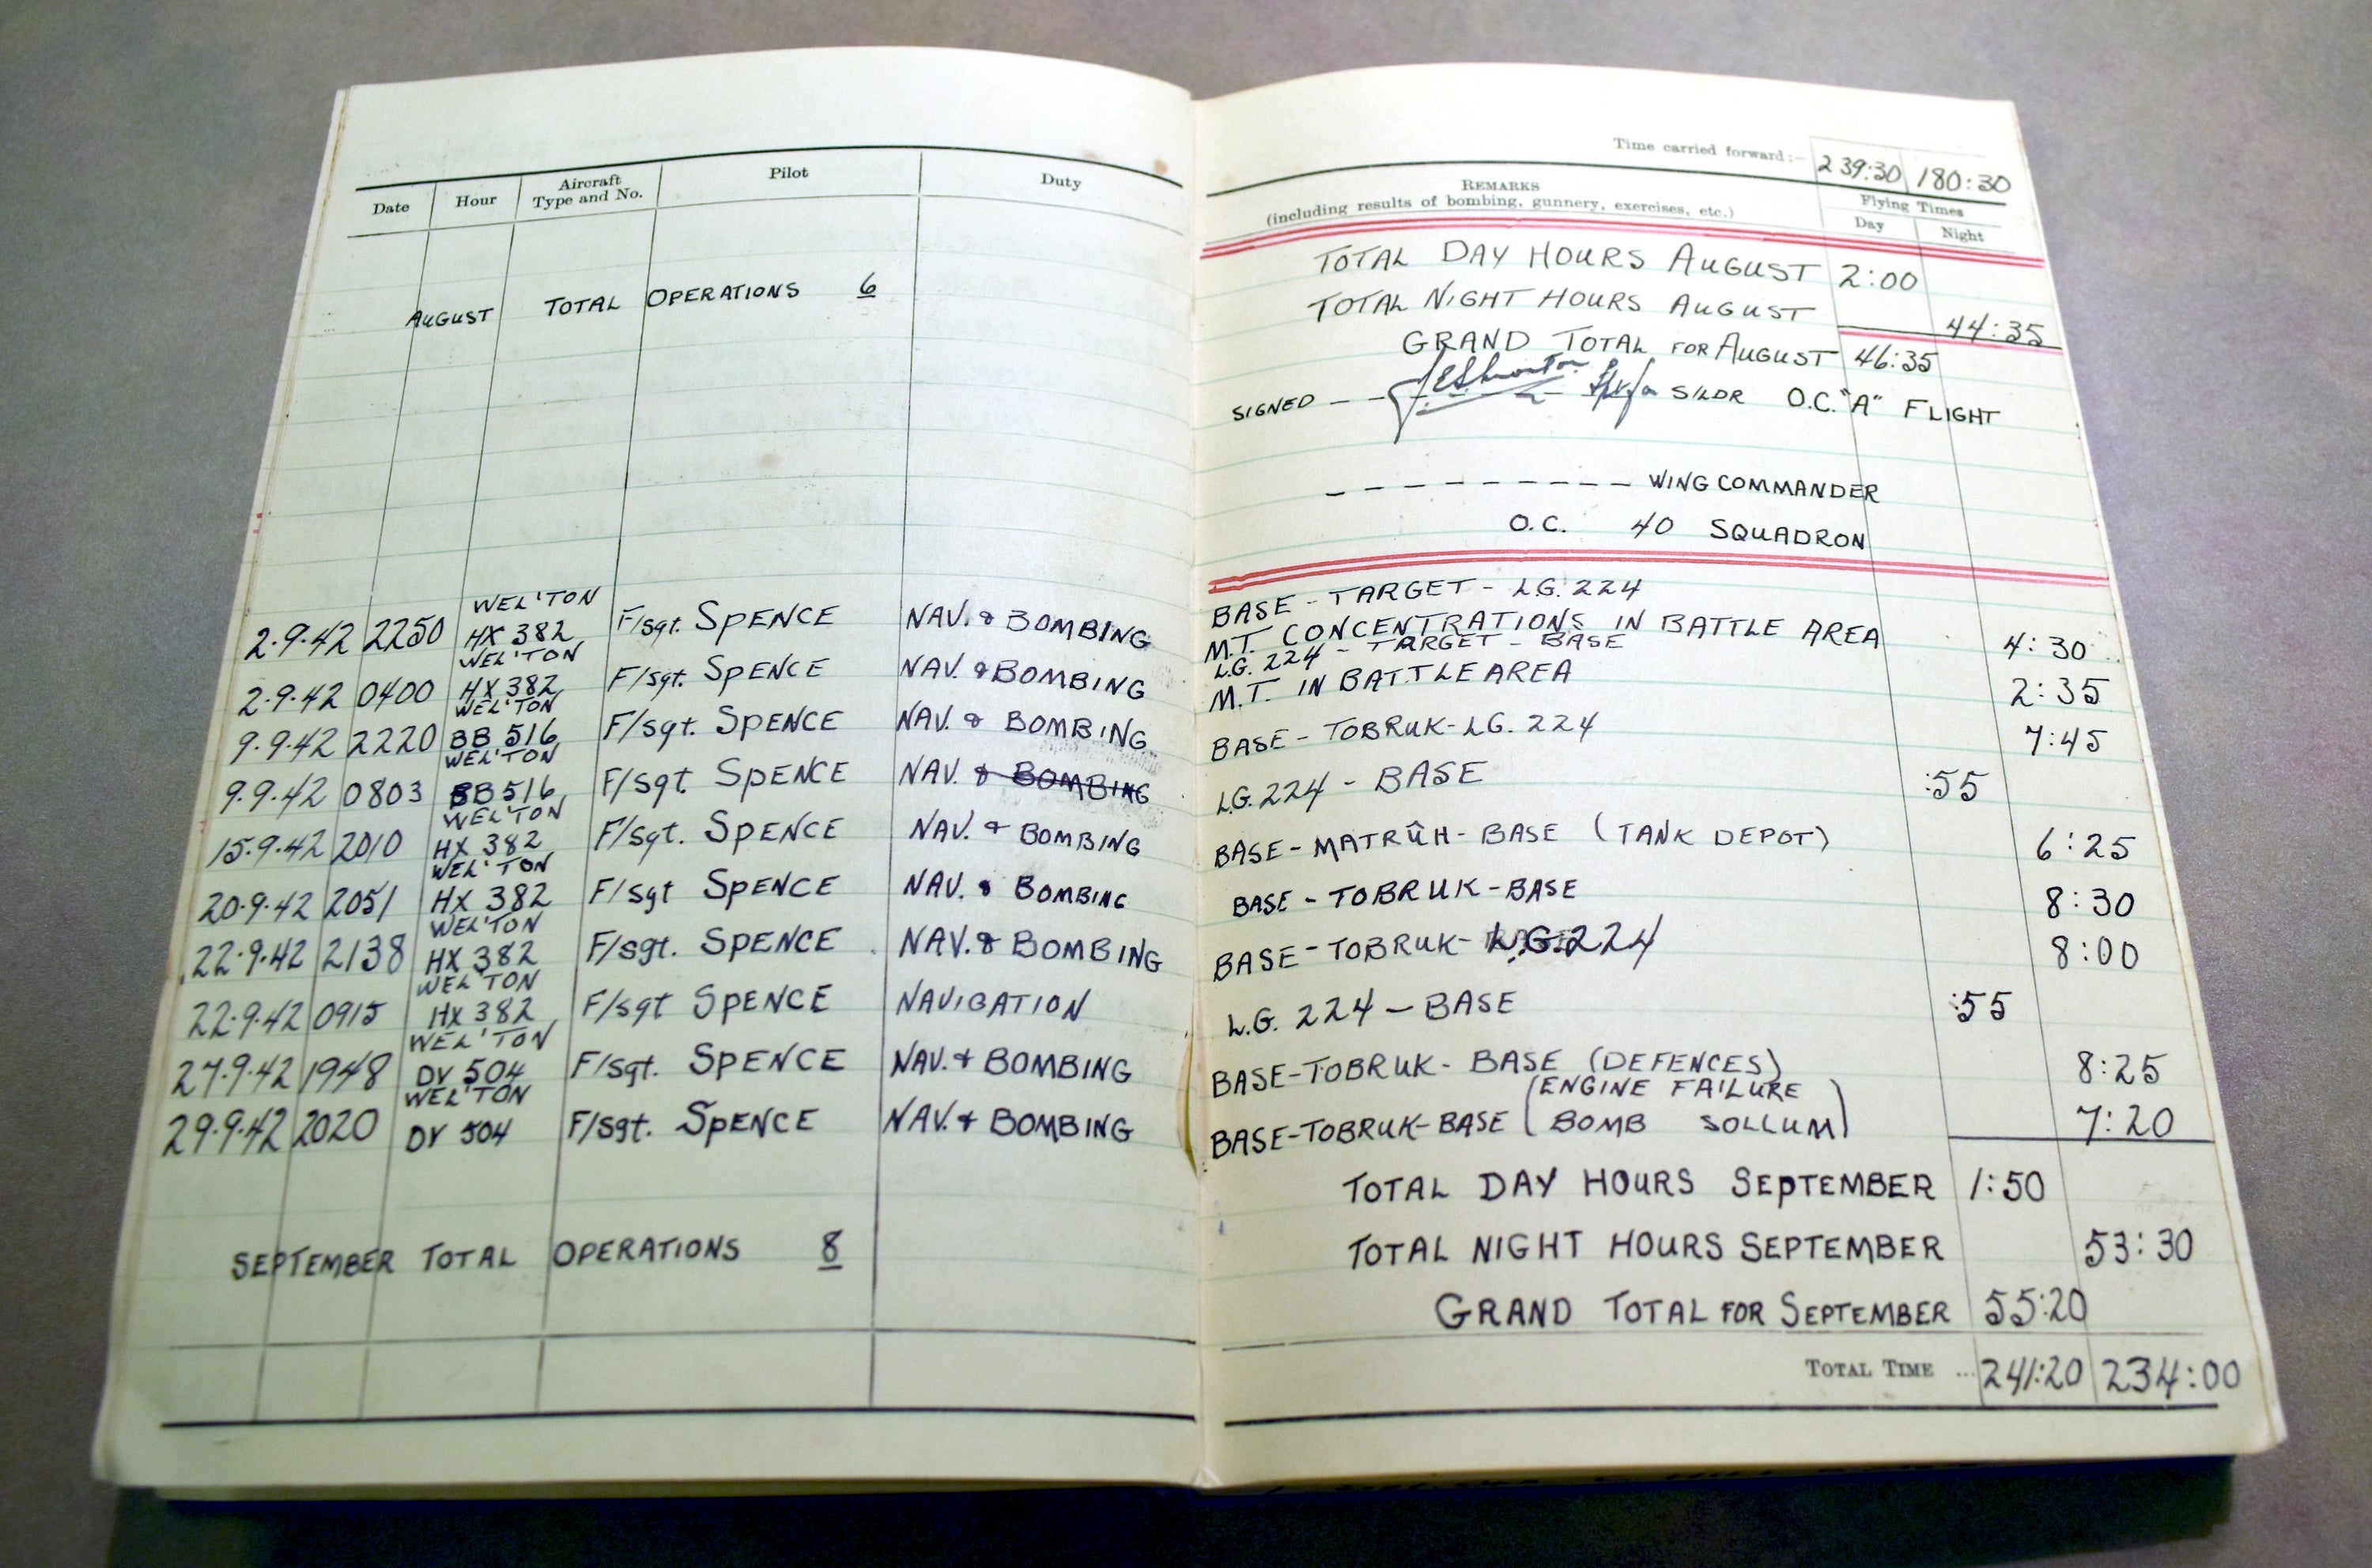 Date Hour Aircraft Type and No. Pilot Duty
AUGUST TOTAL OPERATIONS 6
WEL'TON
2.9.42 2250 HX 382 F/sgt. SPENCE NAV. & BOMBING
WEL'TON
2.9.42 0400 HX 382 F/sgt. SPENCE NAV. & BOMBING
WEL'TON
9.9.42 2220 BB 516 F/sgt. SPENCE NAV. & BOMBING
WEL'TON
9.9.42 0803 BB 516 F/sgt. SPENCE NAV. & BOMBING
WEL'TON
15.9.42 2010 HX 382 F/sgt. SPENCE NAV. & BOMBING
WEL'TON
20.9.42 2051 HX 382 F/sgt SPENCE NAV. & BOMBING
WEL'TON
22.9.42 2138 HX 382 F/sgt. SPENCE NAV. & BOMBING
WEL'TON
22.9.42 0915 HX 382 F/sgt SPENCE NAVIGATION
WEL'TON
27.9.42 1948 DV 504 F/sgt. SPENCE NAV. & BOMBING
WEL'TON
29.9.42 2020 DV 504 F/sgt. SPENCE NAV. & BOMBING
SEPTEMBER TOTAL OPERATIONS 8
Time carried forward:— 239:30 180:30
REMARKS
(including results of bombing, gunnery, exercises, etc.)
Flying Times
Day Night
TOTAL DAY HOURS AUGUST 2:00
TOTAL NIGHT HOURS AUGUST 44:35
GRAND TOTAL FOR AUGUST 46:35
SIGNED – – – S/LDR O.C. "A" FLIGHT
– – – – – – – – – – WING COMMANDER
O.C. 40 SQUADRON
BASE - TARGET - L.G. 224
M.T. CONCENTRATIONS IN BATTLE AREA 4:30
L.G. 224 - TARGET - BASE
M.T. IN BATTLE AREA 2:35
BASE - TOBRUK - L.G. 224 7:45
L.G. 224 - BASE :55
BASE - MATRÛH - BASE (TANK DEPOT) 6:25
BASE - TOBRUK - BASE 8:30
BASE - TOBRUK - L.G. 224 8:00
L.G. 224 — BASE :55
BASE-TOBRUK- BASE (DEFENCES) 8:25
(ENGINE FAILURE
BASE-TOBRUK-BASE BOMB SOLLUM) 7:20
TOTAL DAY HOURS SEPTEMBER 1:50
TOTAL NIGHT HOURS SEPTEMBER 53:30
GRAND TOTAL FOR SEPTEMBER 55:20
TOTAL TIME ... 241:20 234:00